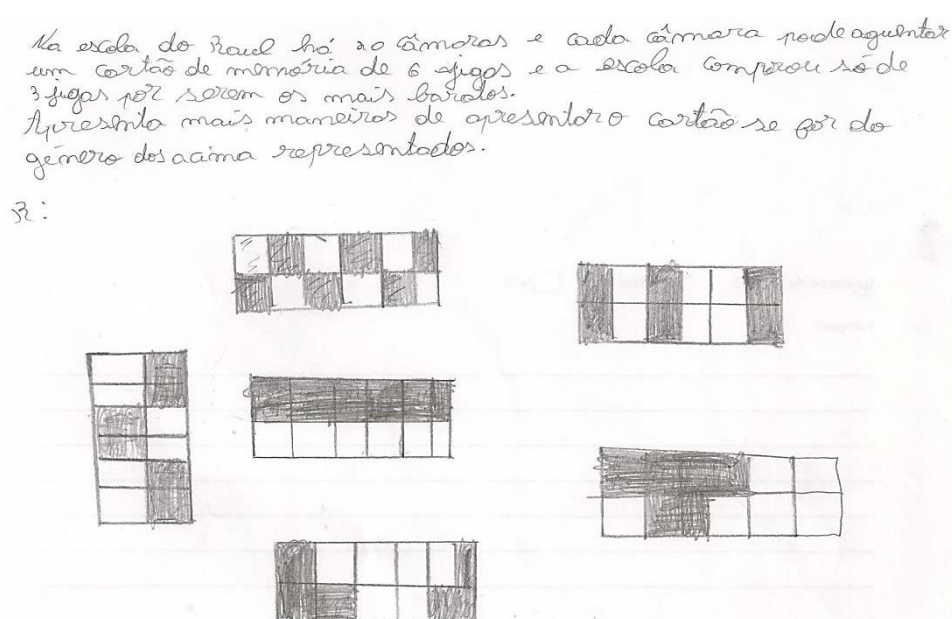 Na escola do Raul há 20 câmaras e cada câmara pode aguentar
um cartão de memória de 6 jigas e a escola comprou só de
3 jigas por serem os mais baratos.
Apresenta mais maneiras de apresentar o cartão se for do
género dos acima representados.
R: